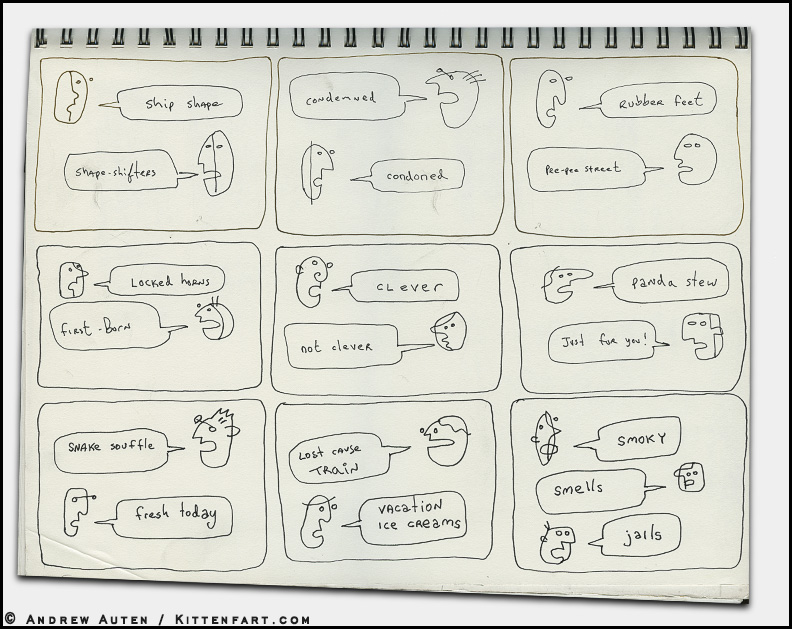 Ship shape
Shape-shifters
condemned
condoned
Rubber feet
Pee-pee street
Locked horns
first-born
CLever
not clever
panda stew
Just for you!
Snake souffle
fresh today
Lost cause
Train
Vacation
ice creams
Smoky
Smells
jails
© Andrew Auten / Kittenfart.com